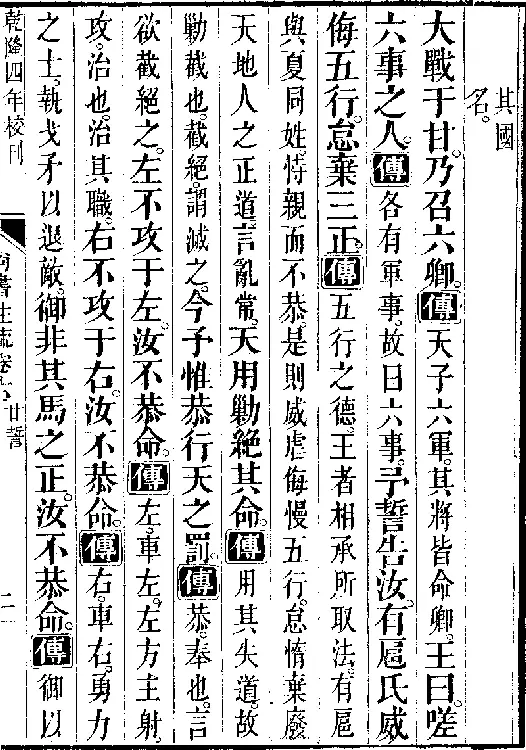 其國
名。
大戰于甘。乃召六卿。傳天子六軍。其將皆命卿。王曰。嗟
六事之人。傳各有軍事。故曰六事。予誓告汝。有扈氏威
侮五行。怠棄三正。傳五行之德。王者相承所取法。有扈
與夏同姓。恃親而不恭。是則威虐侮慢五行。怠惰棄廢
天地人之正道。言亂常。天用勦絕其命。傳用其失道。故
勦截也。截絕。謂滅之。今予惟恭行天之罰。傳恭。奉也。言
欲截絕之。左不攻于左。汝不恭命。傳左。車左。左方主射。
攻。治也。治其職。右不攻于右。汝不恭命。傳右。車右。勇力
之士。執戈矛以退敵。御非其馬之正。汝不恭命。傳御以
乾隆四年校刊
尚書注疏卷六 甘誓